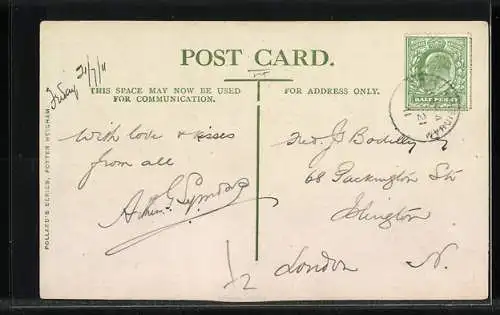 POST CARD.
THIS SPACE MAY NOW BE USED
FOR COMMUNICATION.
FOR ADDRESS ONLY.
HALF PENNY
Friday 21/7/11
With love & kisses
from all
Fred J
68 Packington Str
Islington
London N.
1/2
POLLARD'S SERIES, POTTER HEIGHAM